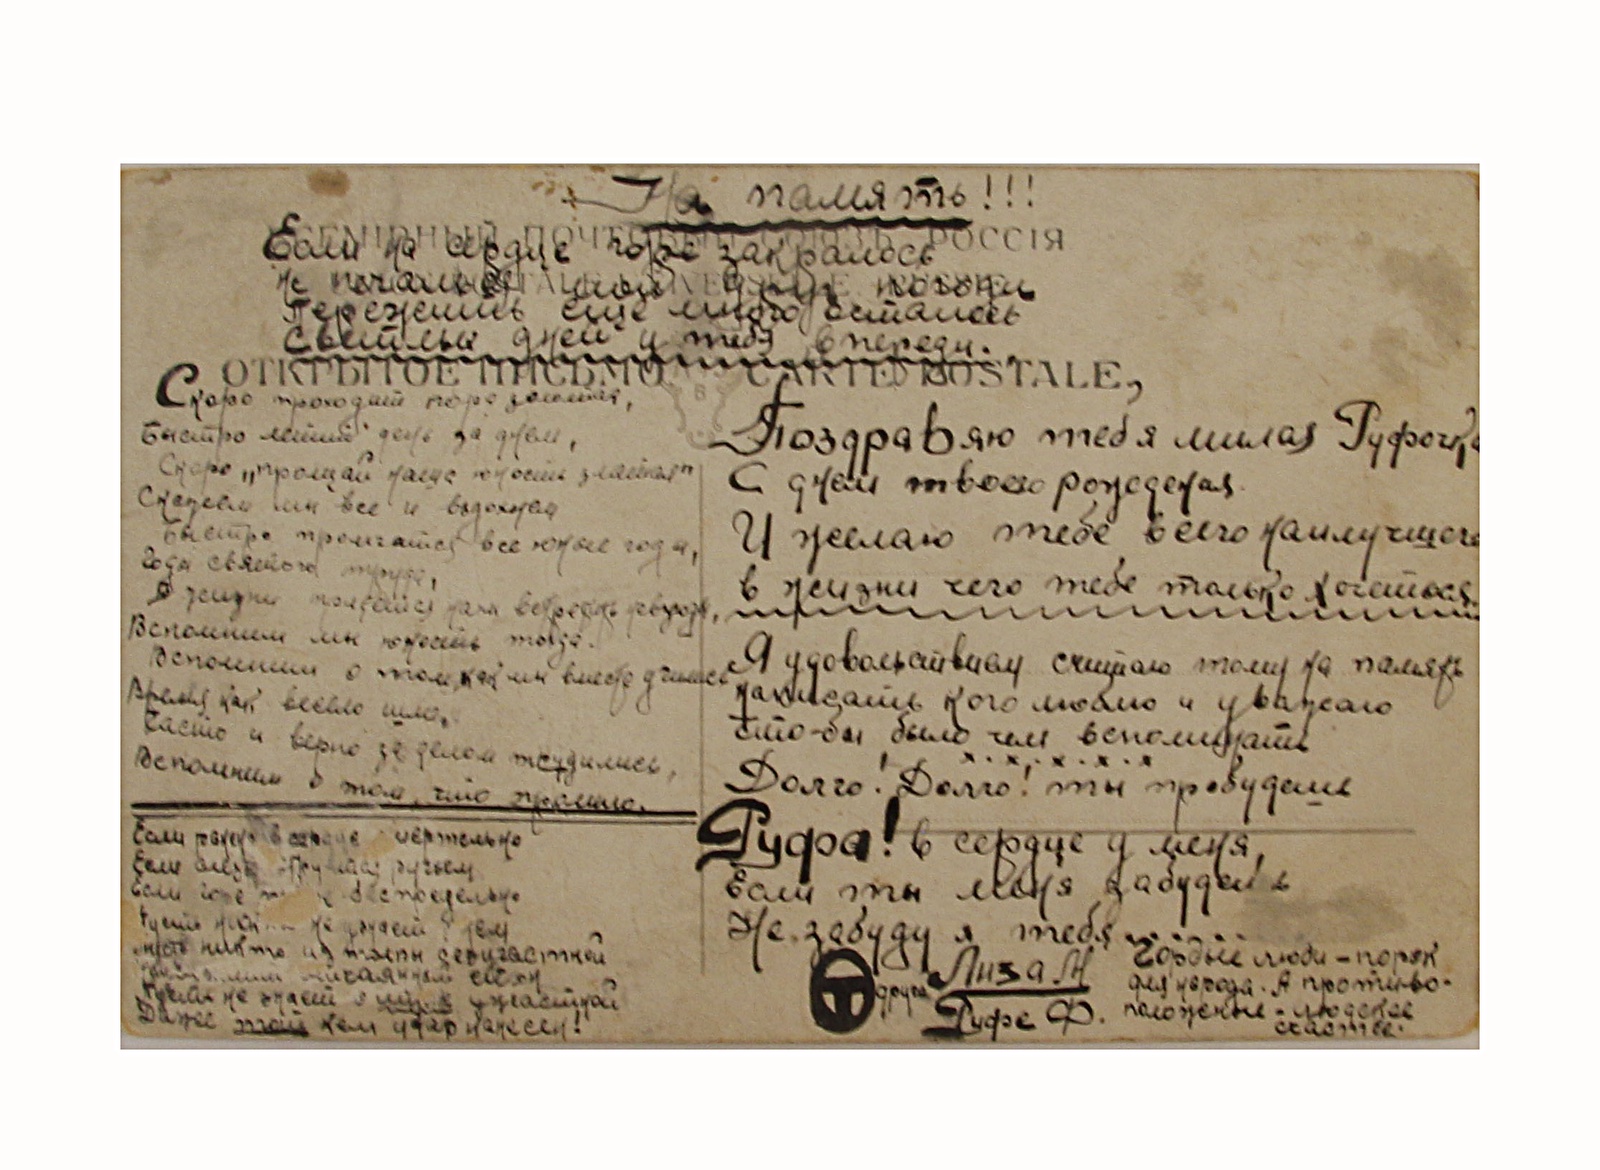 На память!!!
ВСЕМІРНЫЙ ПОЧТОВЫЙ СОЮЗЪ. РОССІЯ
Если на сердце горе закралось
Не печалься мой друг
Переживешь еще много осталось
Светлых дней у тебя впереди.
ОТКРЫТОЕ ПИСЬМО. CARTE POSTALE
Скоро проходит пора золотая,
Быстро летит день за днем,
Скоро „прощай наша юность златая"
Скажем мы все и вздохнем
Быстро промчатся все юные года,
Годы святого труда,
В жизни придется нам встретить невзгоды,
Вспомним мы юность тогда.
Вспомним о том, как мы вместе учились
Время как весело шло,
Часто и верно за делом трудились,
Вспомним о том, что прошло.
Если в сердце смертельно
Если слезы ручьем
Если горе беспредельно
Пусть не знает о нем
никто из толпы безучастной
Пусть не знает о ужасной
Даже той кем удар нанесен!
Поздравяю тебя милая Руфочка
С днем твоего рождения.
И желаю тебе всего наилучшего
в жизни чего тебе только хочется.
Я удовольствием считаю тому на память
написать кого люблю и уважаю
что-бы было чем вспоминать
Долго! Долго! ты пробудешь
Руфа! в сердце у меня,
Если ты меня забудешь
Не забуду я тебя
друга Лиза М
Руфе Ф.
Гордые люди - порок
для народа. А противо-
положные - людское
счастье.